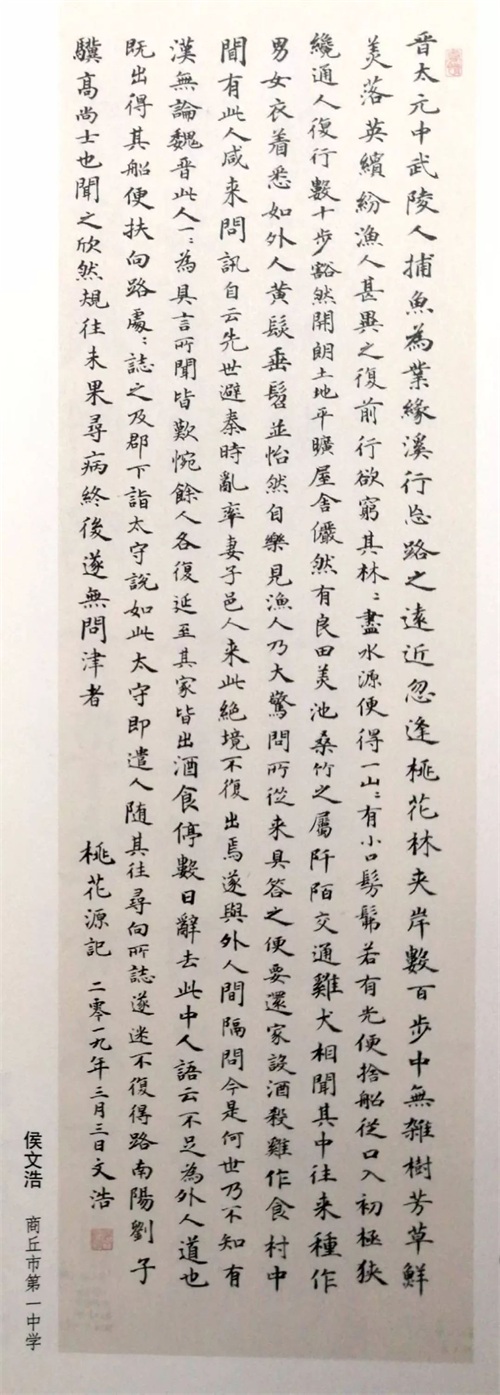 晉太元中武陵人捕魚為業緣溪行忘路之遠近忽逢桃花林夾岸數百步中無雜樹芳草鮮
美落英繽紛漁人甚異之復前行欲窮其林〻盡水源便得一山〻有小口髣髴若有光便捨船從口入初極狹
纔通人復行數十步豁然開朗土地平曠屋舍儼然有良田美池桑竹之屬阡陌交通雞犬相聞其中往来種作
男女衣着悉如外人黃髮垂髫並怡然自樂見漁人乃大驚問所從来具答之便要還家設酒殺雞作食村中
聞有此人咸来問訊自云先世避秦時亂率妻子邑人来此絕境不復出焉遂與外人間隔問今是何世乃不知有
漢無論魏晉此人一〻為具言所聞皆歎惋餘人各復延至其家皆出酒食停數日辭去此中人語云不足為外人道也
既出得其船便扶向路處〻誌之及郡下詣太守說如此太守即遣人隨其往尋向所誌遂迷不復得路南陽劉子
驥高尚士也聞之欣然規往未果尋病終後遂無問津者 桃花源記 二零一九年三月三日文浩
侯文浩 商丘市第一中学